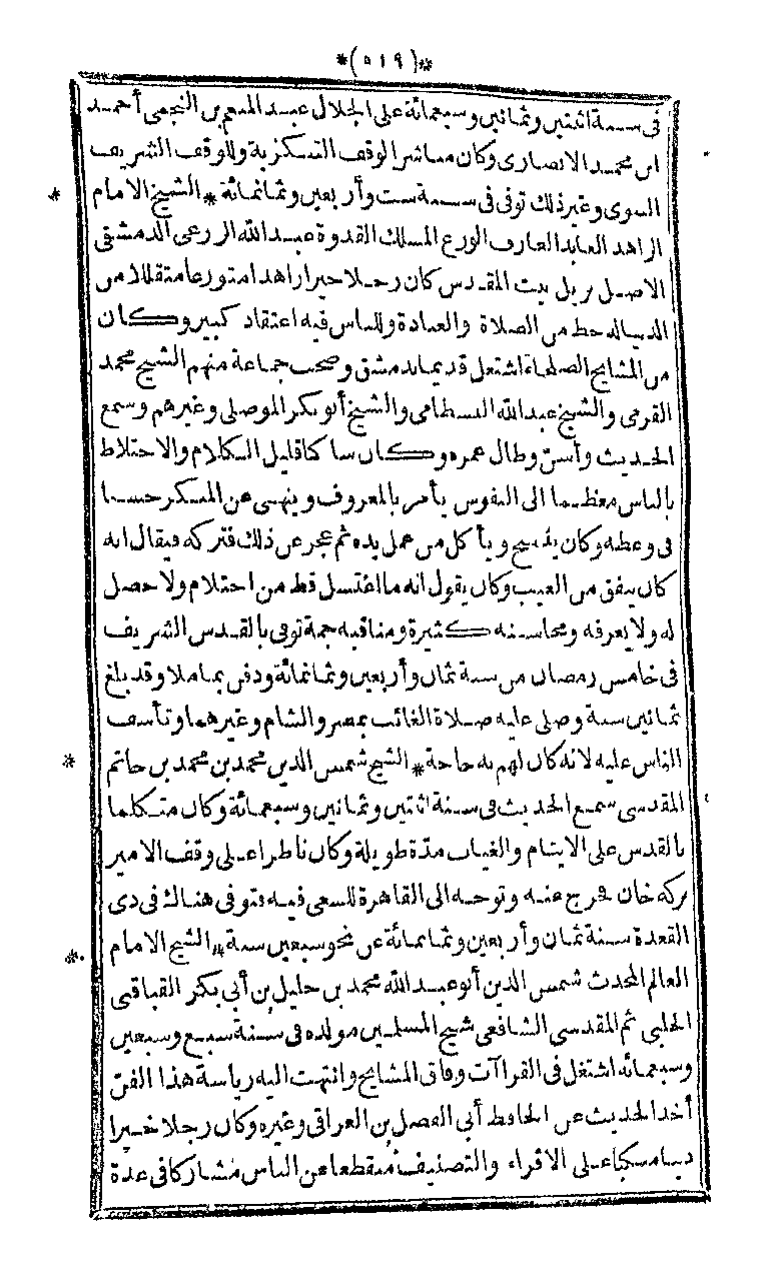 *(٥١٩)*
فى سنة اثنتين وثمانين وسبعمائة على الجلال عبد المنعم بن النجمى أحمد
ابن محمد الانصارى وكان مباشر الوقف التنكزية وللوقف الشريف
النبوى وغير ذلك توفى فى سنة ست وأربعين وثمانمائة * الشيخ الامام
الزاهد العابد العارف الورع المسلك القدوة عبد الله الزرعى الدمشقى
الاصل نزيل بيت المقدس كان رجلا خيرا زاهدا متورعا متقللا من
الدنيا له حظ من الصلاة والعبادة وللناس فيه اعتقاد كبير وكان
من المشايخ الصلحاء اشتغل قديما بدمشق وصحب جماعة منهم الشيخ محمد
القرمى والشيخ عبد الله البسطامى والشيخ أبو بكر الموصلى وغيرهم وسمع
الحديث وأسن وطال عمره وكان ساكنا قليل الكلام والاختلاط
بالناس معظما الى النفوس يأمر بالمعروف وينهى عن المنكر حسنا
فى وعظه وكان ينسج ويأكل من عمل يده ثم عجز عن ذلك فتركه فيقال انه
كان ينفق من الغيب وكان يقول انه ما اغتسل قط من احتلام ولا حصل
له ولا يعرفه ومحاسنه كثيرة ومناقبه جمة توفى بالقدس الشريف
فى خامس رمضان من سنة ثمان وأربعين وثمانمائة ودفن بماملا وقد بلغ
ثمانين سنة وصلى عليه صلاة الغائب بمصر والشام وغيرهما وتأسف
الناس عليه لانه كان لهم به حاجة * الشيخ شمس الدين محمد بن محمد بن حاتم
المقدسى سمع الحديث فى سنة اثنتين وثمانين وسبعمائة وكان متكلما
بالقدس على الايتام والغياب مدة طويلة وكان ناظرا على وقف الامير
بركه خان فخرج عنه وتوجه الى القاهرة للسعى فيه فتوفى هناك فى ذى
القعدة سنة ثمان وأربعين وثمانمائة عن نحو سبعين سنة * الشيخ الامام
العالم المحدث شمس الدين أبو عبد الله محمد بن خليل بن أبى بكر القباقبى
الحلبى ثم المقدسى الشافعى شيخ المسلمين مولده فى سنة سبع وسبعين
وسبعمائه اشتغل فى القراآت وفاق المشايخ وانتهت اليه رياسة هذا الفن
أخذ الحديث عن الحافظ أبى الفضل بن العراقى وغيره وكان رجلا خيرا
دينا مكبا على الاقراء والتصنيف منقطعا عن الناس مشاركا فى عدة